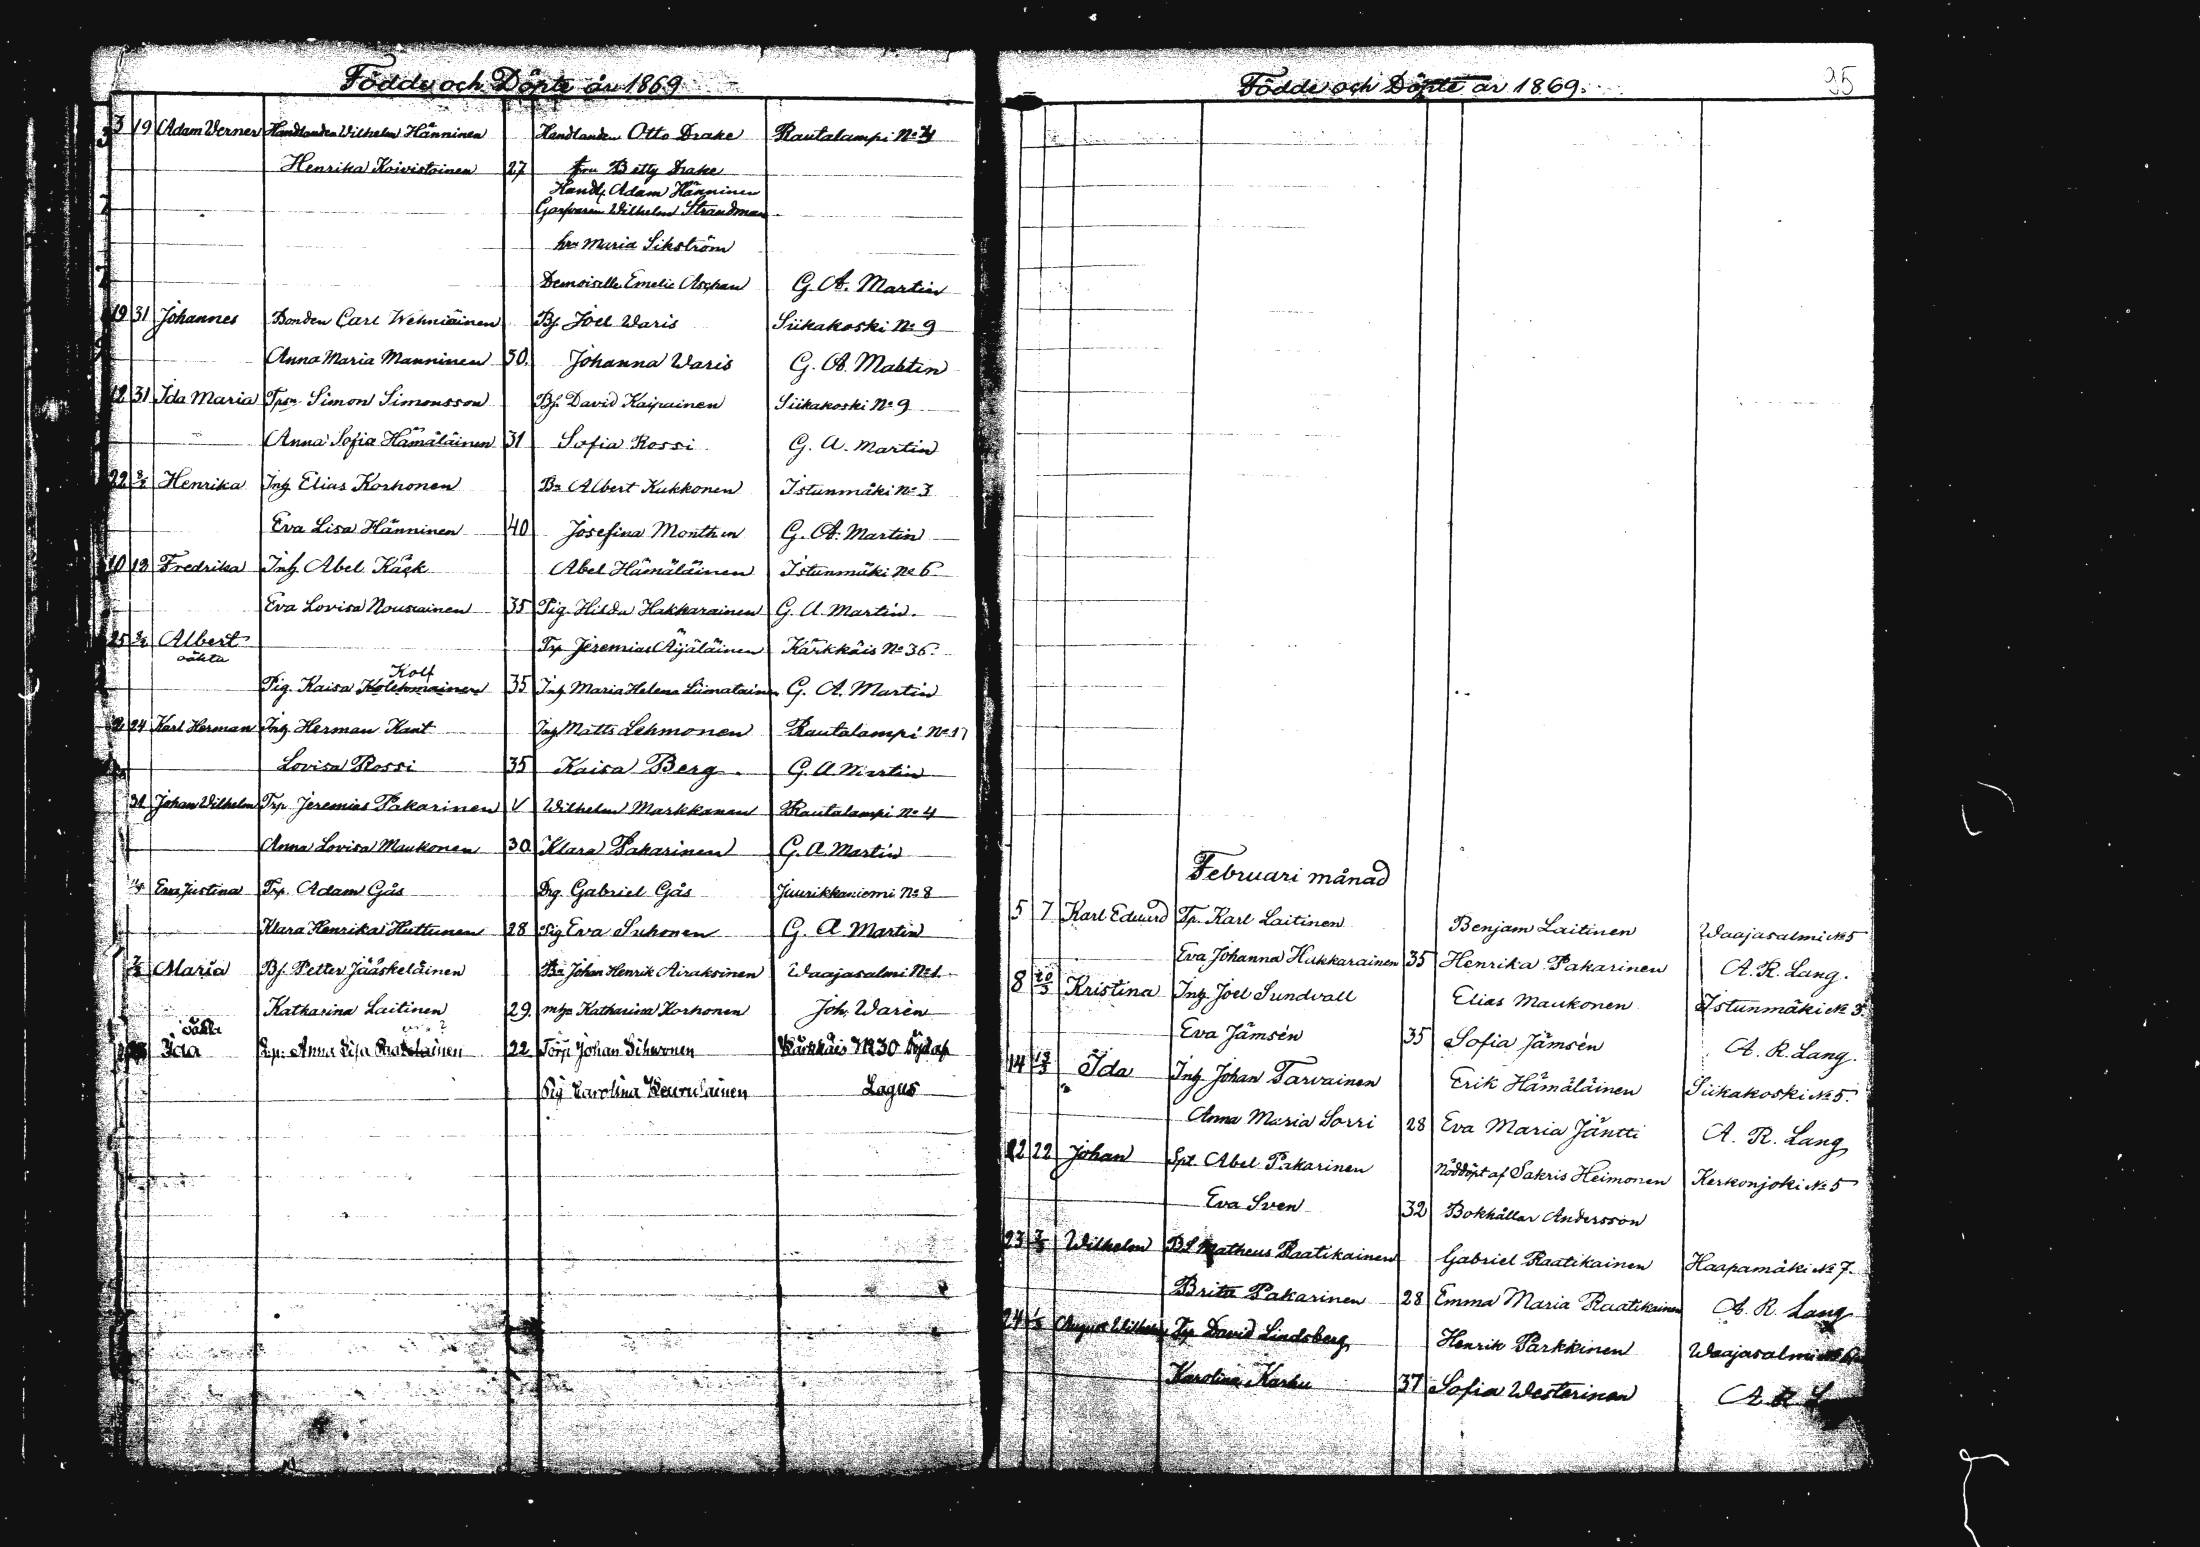 Födde och Döpte år 1869
3 19 Adam Verner Handlanden Wilhelm Hänninen Handlanden Otto Drake Rautalampi No 34
Henrika Koivistoinen 27 fru Betty Drake
Handl. Adam Hänninen
Garfvaren Wilhelm Strandman
fru Maria Sikström
Demoiselle Emelie Aschan G. A. Martin
19 31 Johannes Bonden Carl Wehniäinen Bf. Joel Waris Siikakoski No 9
Anna Maria Manninen 30. Johanna Waris G. A. Martin
12 31 Ida Maria Tpsn Simon Simonsson Bf. David Kaipainen Siikakoski No 9
Anna Sofia Hämäläinen 31 Sofia Rossi G. A. Martin
22 Henrika Inh. Elias Korhonen Bn Albert Kukkonen Istunmäki No 3
Eva Lisa Hänninen 40 Josefina Monthen G. A. Martin
10 13 Fredrika Inh. Abel Käck Abel Hämäläinen Istunmäki No 6
Eva Lovisa Nousiainen 35 Pig. Hilda Hakkarainen G. A. Martin.
25 Albert Trp Jeremias Äijäläinen Kärkkäis No 36.
oäkta
Kolf
Pig. Kaisa Kolehmainen 35 Inh. Maria Helena Liimatainen G. A. Martin
2 24 Karl Herman Inh. Herman Kant Inh Matts Lehmonen Rautalampi No 17
Lovisa Rossi 35 Kaisa Berg G. A. Martin
31 Johan Wilhelm Trp. Jeremias Pakarinen V Wilhelm Markkanen Rautalampi No 4
Anna Lovisa Maukonen 30 Klara Pakarinen G. A. Martin
Eva Justina Trp. Adam Gås Drg. Gabriel Gås Juurikkaniemi No 8
Klara Henrika Huttunen 28 Pig Eva Suhonen G. A. Martin
Maria Bf. Petter Jääskeläinen Bn Johan Henrik Airaksinen Waajasalmi No 1.
Katharina Laitinen 29. Katharina Korhonen Joh. Warén
oäkta
Ida Anna Lisa 22 Torp Johan Sihvonen Kärkkäis No 30
Pig Carolina Keurulainen Lagus
Födde och Döpte år 1869.
25
Februari månad
5 7 Karl Edvard Tp. Karl Laitinen Benjam Laitinen Waajasalmi No 5
Eva Johanna Hakkarainen 35 Henrika Pakarinen A. R. Lang.
8 20/3 Kristina Inh. Joel Sundvall Elias Maukonen Istunmäki No 3.
Eva Jämsén 35 Sofia Jämsén A. R. Lang.
14 Ida Inh. Johan Tarvainen Erik Hämäläinen Siikakoski No 5.
Anna Maria Sorri 28 Eva Maria Jäntti A. R. Lang
22 22 Johan Spt. Abel Pakarinen Nöddöpt af Sakris Heimonen Kerkonjoki No 5
Eva Sven 32 Bokhållar Andersson
23 Wilhelm BS Matheus Raatikainen Gabriel Raatikainen Haapamäki No 7.
Brita Pakarinen 28 Emma Maria Raatikainen A. R. Lang
24 August Wilhelm Tp David Lindsberg Henrik Parkkinen Waajasalmi
Karolina Karhu 37 Sofia Westerinen A R L